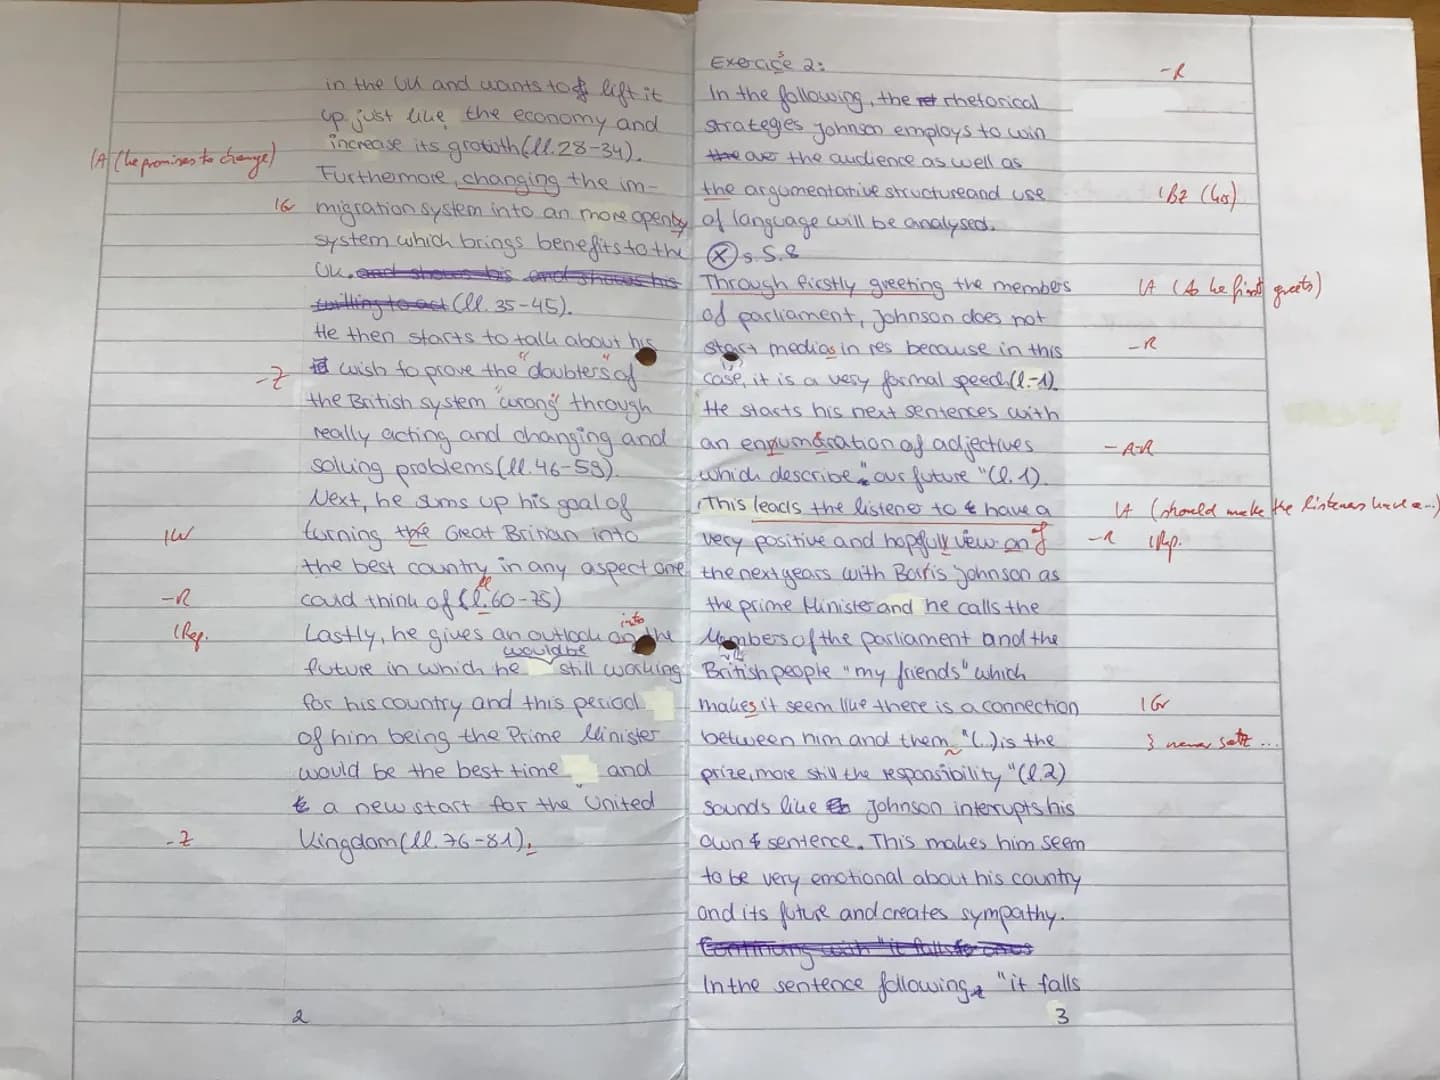 in the UK and wants to lift it
up, just like the economy and
increase its growth (ll. 28-34).
IA (he promises to change)
Furthermore, changing the im-
IG
migration system into an more openly
system which brings benefits to the
UK. and shows his and shows his
willing to act (ll. 35-45).
He then starts to talk about his
-Z
wish to prove the "doubters" of
the British system "wrong" through
really acting and changing and
solving problems (ll. 46-59).
Next, he sums up his goal of
IW
turning the Great Britian into
the best country in any aspect one
-R
could think of (l. 60-75)
IRep.
Lastly, he gives an outlook on the
into
would be
future in which he still working
for his country and this period
of him being the Prime Minister
would be the best time and
a new start for the United
-Z
Kingdom (ll. 76-81).
2
Exercice 2:
s
-R
In the following, the ret rhetorical
strategies Johnson employs to win
the over the audience as well as
the argumentative structure and use
IBz
of language will be analysed.
X s. S. 8
Through firstly greeting the members
IA (As he first greets)
of parliament, Johnson does not
start medias in res because in this
-R
case, it is a very formal speech (l. 1).
He starts his next sentences with
an enumeration of adjectives
-A-R
which describe "our future" (l. 1).
This leads the listener to have a
IA (should make the listeners have a...)
very positive and hopefull view on
of
-R IRep.
the next years with Boris Johnson as
the prime Minister and he calls the
Members of the parliament and the
British people "my friends" which
makes it seem like there is a connection
IGr
between him and them. "(..) is the
prize, more still the responsibility" (l. 2)
sounds like Johnson interrupts his
own sentence. This makes him seem
to be very emotional about his country
and its future and creates sympathy.
Continuing with "it falls to ones
In the sentence following, "it falls
3